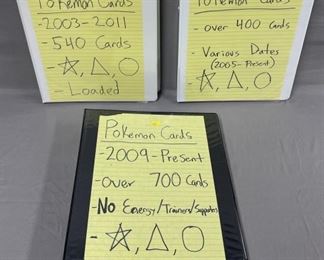 Pokemon Cards
-2003-2011
-540 Cards
-☆, △, ○
-Loaded
Pokemon Cards
-over 400 Cards
-Various Dates
(2005-Present)
-☆, △, ○
Pokemon Cards
-2009-Present
-over 700 Cards
-No Energy/Trainers/Supporters
-☆, △, ○